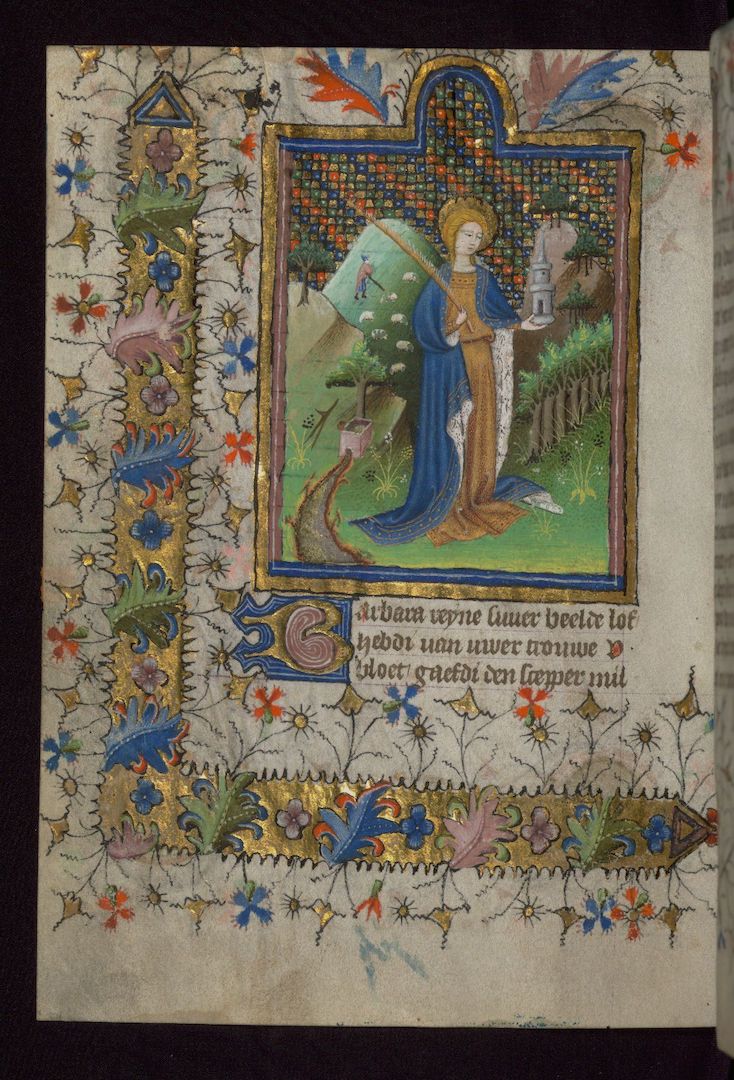 Barbara reyne suuer beelde lof
hebdi van uwer trouwe V
bloet gaefdi den scepper mil